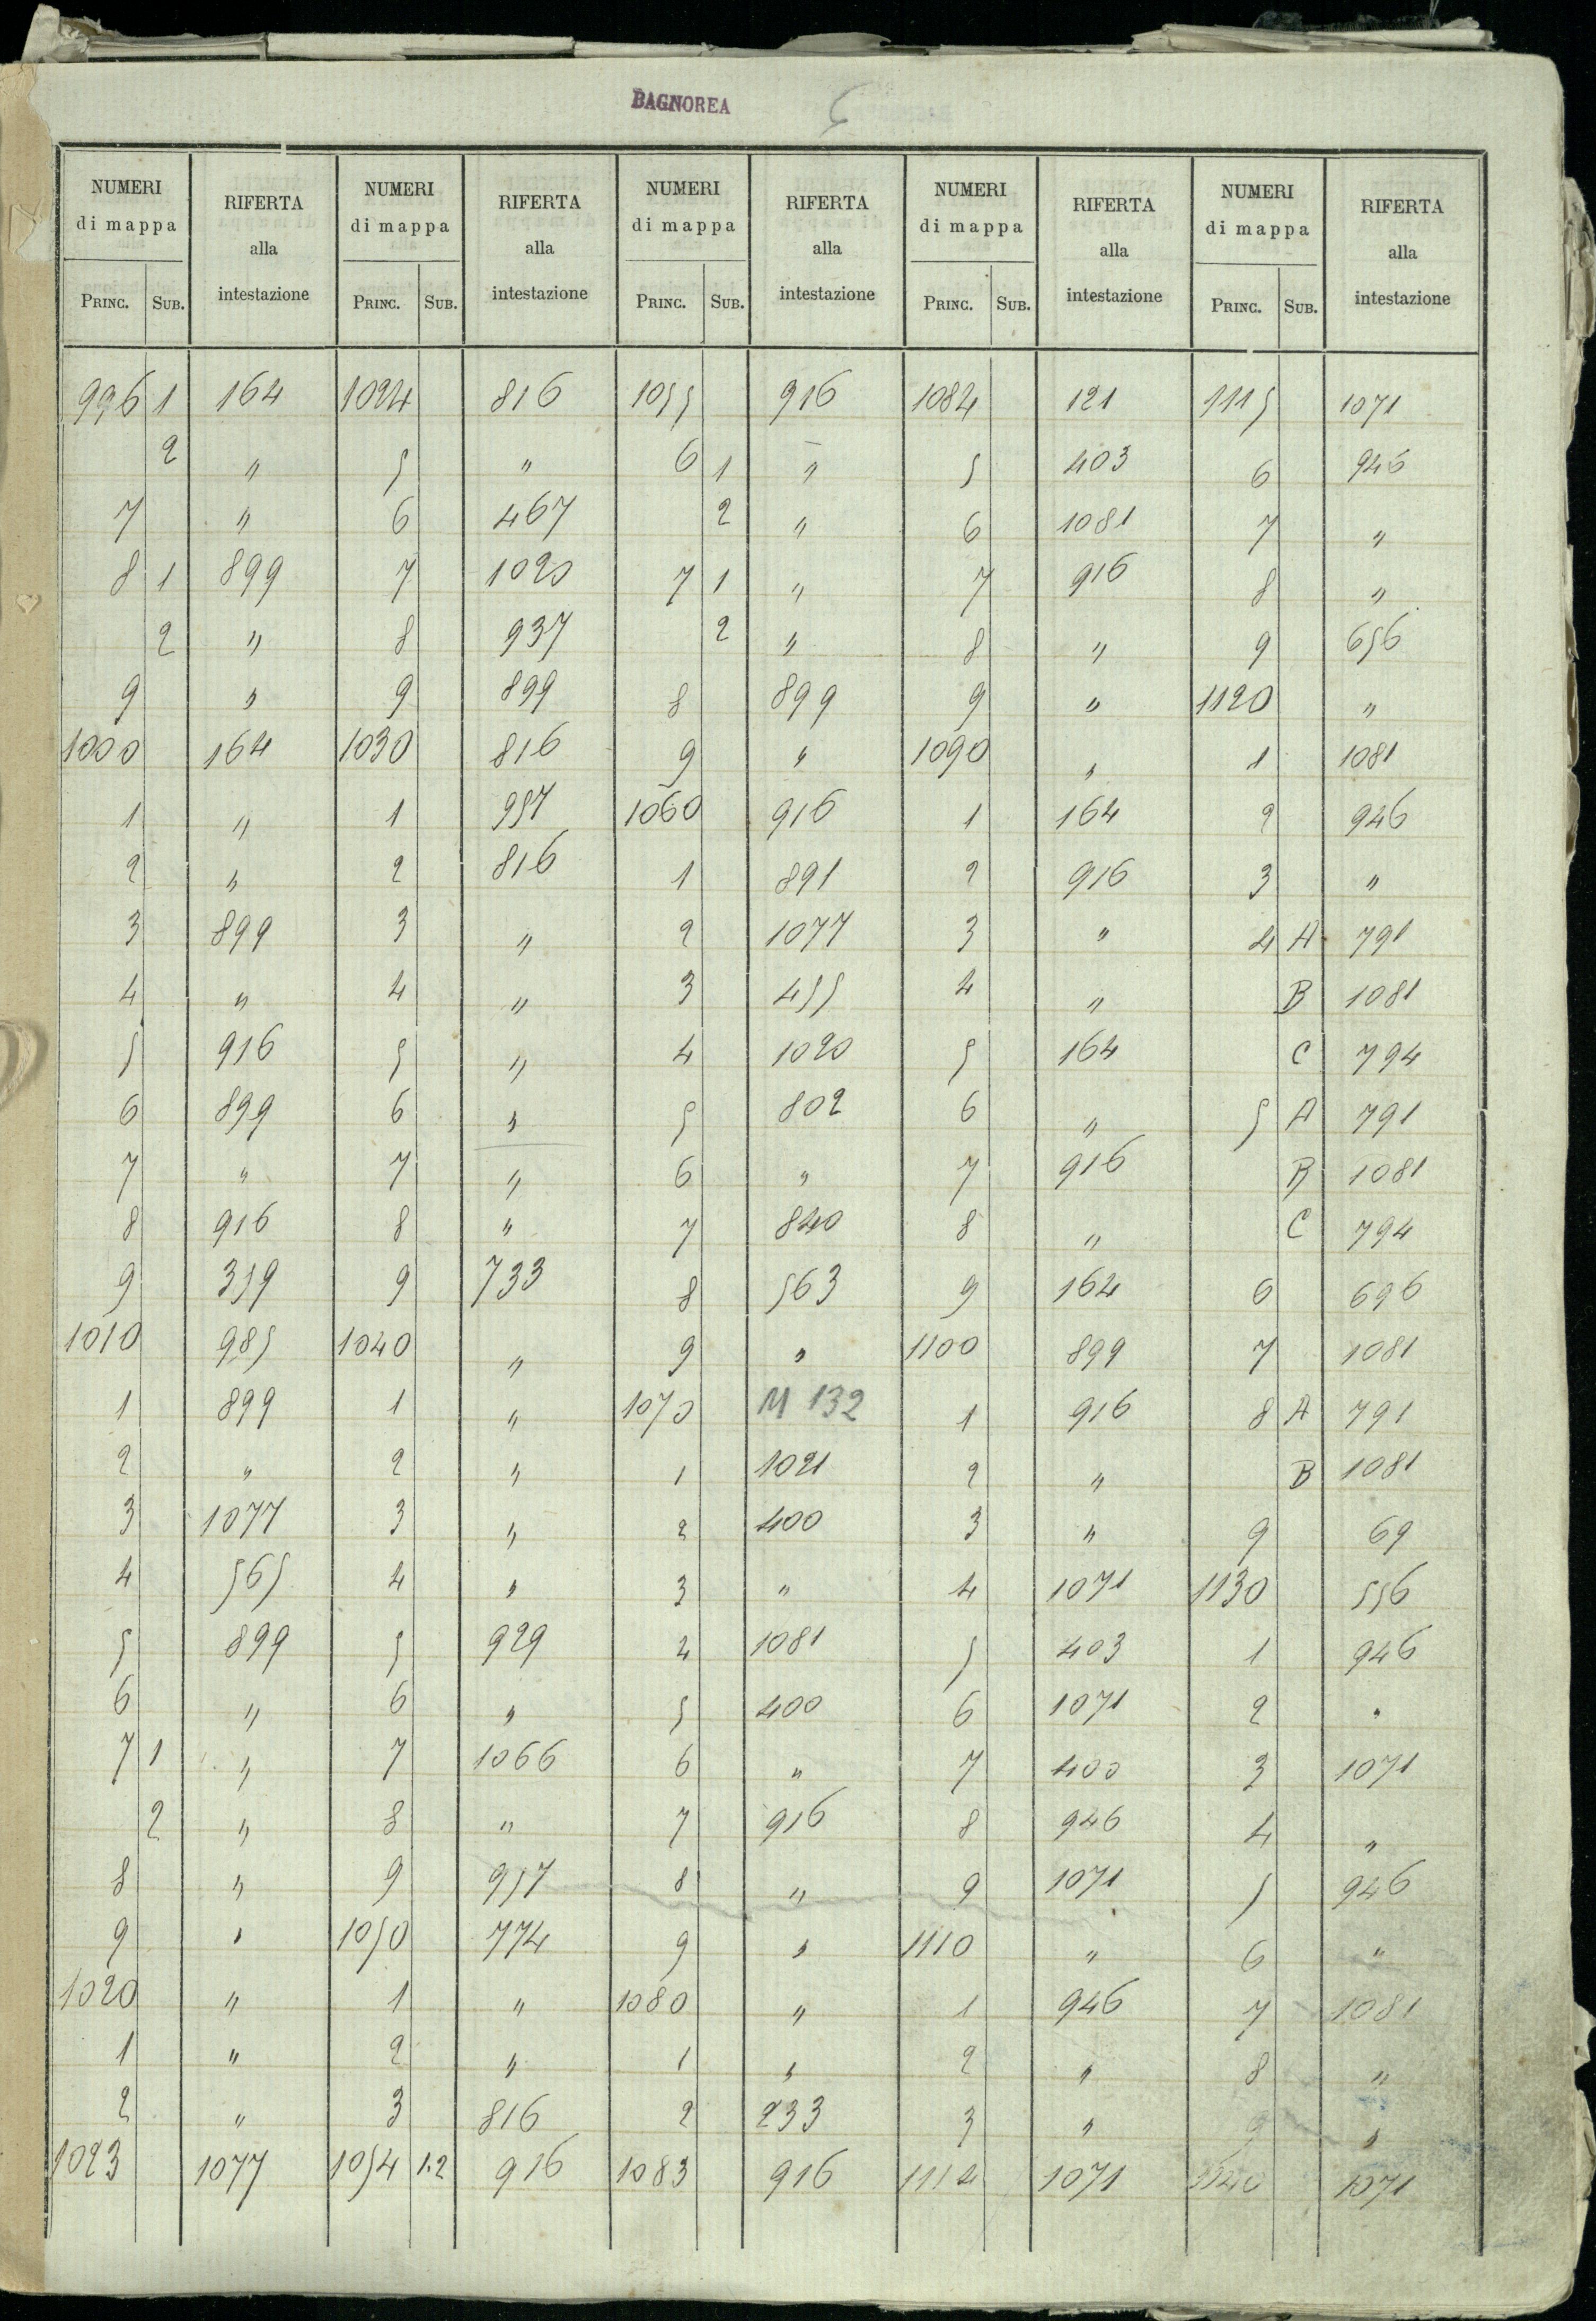 BAGNOREA 5
NUMERI di mappa RIFERTA alla intestazione NUMERI di mappa RIFERTA alla intestazione NUMERI di mappa RIFERTA alla intestazione NUMERI di mappa RIFERTA alla intestazione NUMERI di mappa RIFERTA alla intestazione
PRINC. SUB. PRINC. SUB. PRINC. SUB. PRINC. SUB. PRINC. SUB.
996 1 164 1024 816 1055 916 1084 121 1115 1071
2 " 5 " 6 1 " 5 403 6 946
7 " 6 467 2 " 6 1081 7 "
8 1 899 7 1020 7 1 " 7 916 8 "
2 " 8 937 2 " 8 " 9 656
9 " 9 899 8 899 9 " 1120 "
1000 164 1030 816 9 " 1090 " 1 1081
1 " 1 957 1060 916 1 164 2 946
2 " 2 816 1 891 2 916 3 "
3 899 3 " 2 1077 3 " 4 A 791
4 " 4 " 3 455 4 " B 1081
5 916 5 " 4 1020 5 164 C 794
6 899 6 " 5 802 6 " 5 A 791
7 " 7 " 6 " 7 916 B 1081
8 916 8 " 7 840 8 " C 794
9 359 9 733 8 563 9 164 6 696
1010 985 1040 " 9 " 1100 899 7 1081
1 899 1 " 1070 M 132 1 916 8 A 791
2 " 2 " 1 1021 2 " B 1081
3 1077 3 " 2 400 3 " 9 69
4 565 4 " 3 " 4 1071 1130 556
5 899 5 929 4 1081 5 403 1 946
6 " 6 " 5 400 6 1071 2 "
7 1 " 7 1066 6 " 7 400 3 1071
2 " 8 " 7 916 8 946 4 "
8 " 9 957 8 " 9 1071 5 946
9 " 1050 774 9 " 1110 " 6 "
1020 " 1 " 1080 " 1 946 7 1081
1 " 2 " 1 " 2 " 8 "
2 " 3 816 2 233 3 " 9 "
1023 1077 1054 1.2 916 1083 916 1114 1071 1140 1071